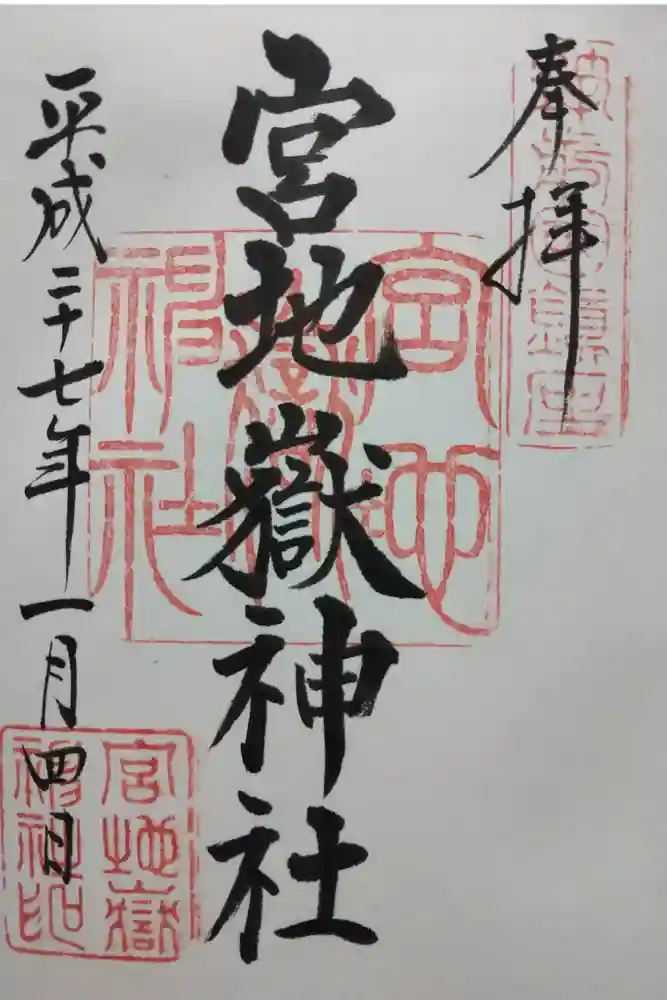 奉拝
宮地嶽神社
平成二十七年一月四日
宮地
嶽
神社
宮地嶽
神社印